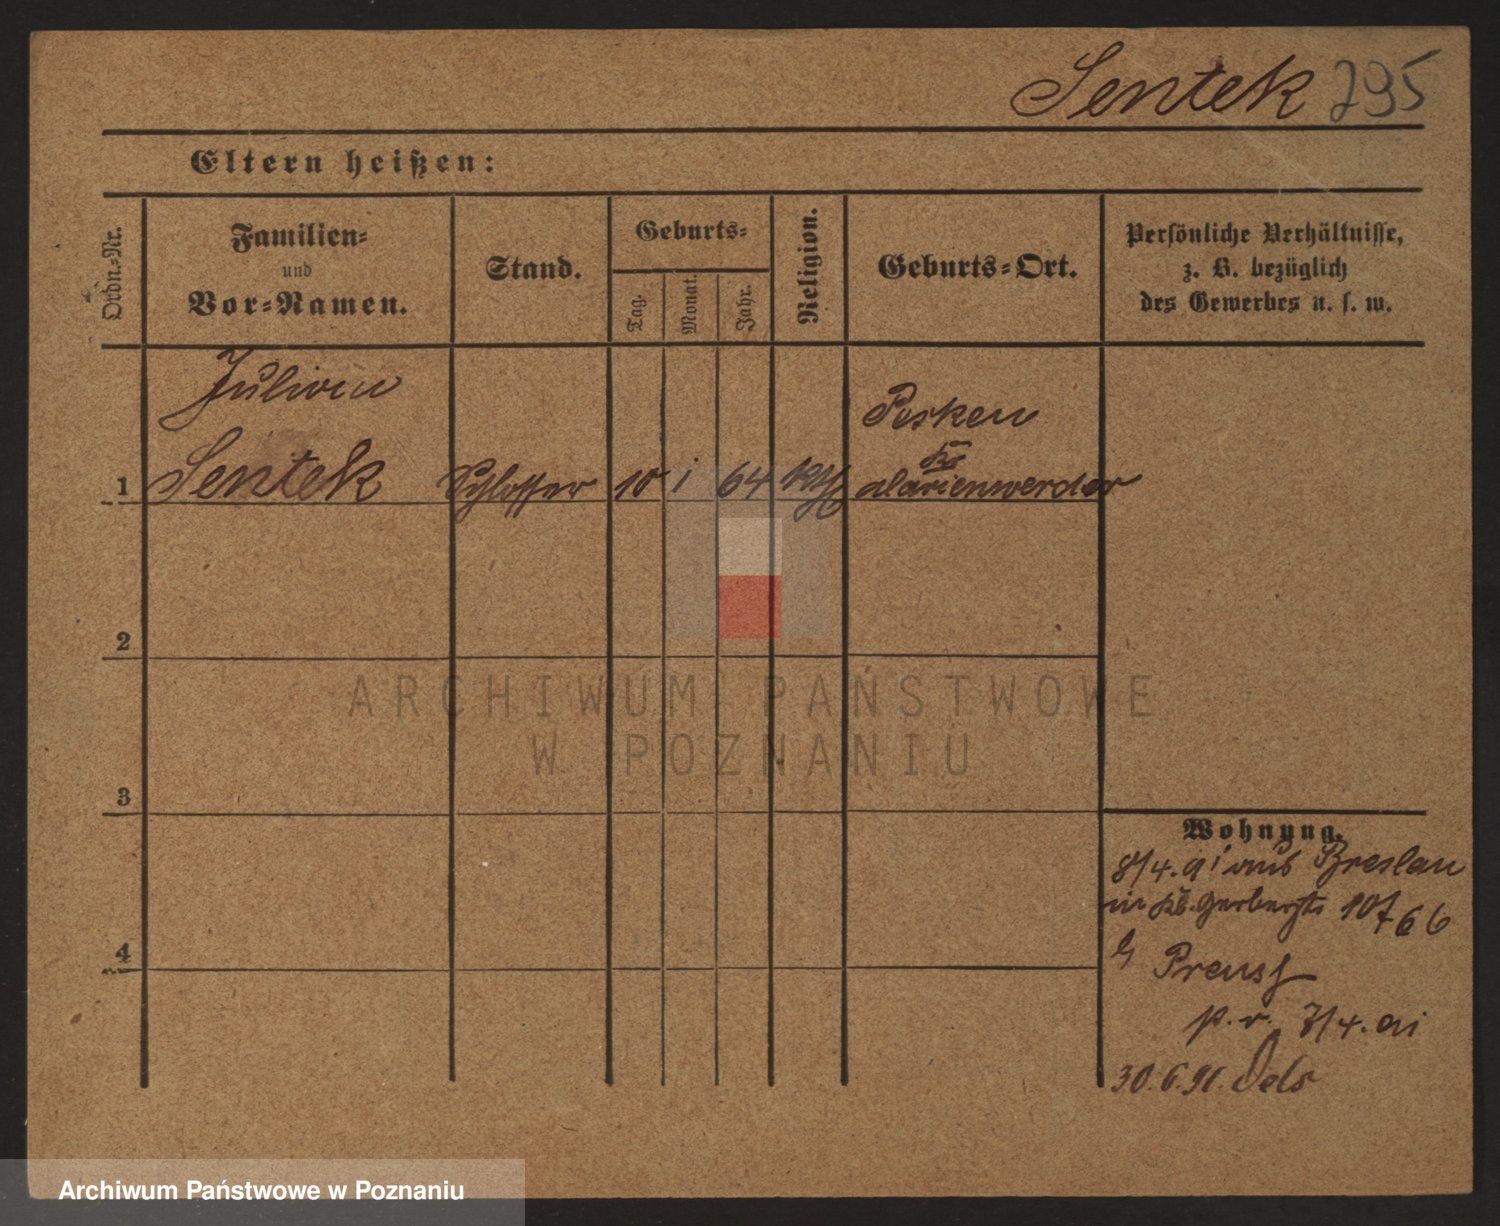 Sentek 295
Eltern heißen:
Ordn.-Nr.
Familien-
und
Vor-Namen.
Stand.
Geburts-
Tag.
Monat.
Jahr.
Religion.
Geburts-Ort.
Persönliche Verhältnisse,
z. B. bezüglich
des Gewerbes u. s. w.
Julian
Posken
Kr
1 Sentek Schlosser 10 1 64 kth Marienwerder
2
ARCHIWUM PAŃSTWOWE
W POZNANIU
3
4
Wohnung.
8/4. 91 aus Breslau
in
b/ Preuss
p. v. 7/4. 91
30.6.91. Oels
Archiwum Państwowe w Poznaniu